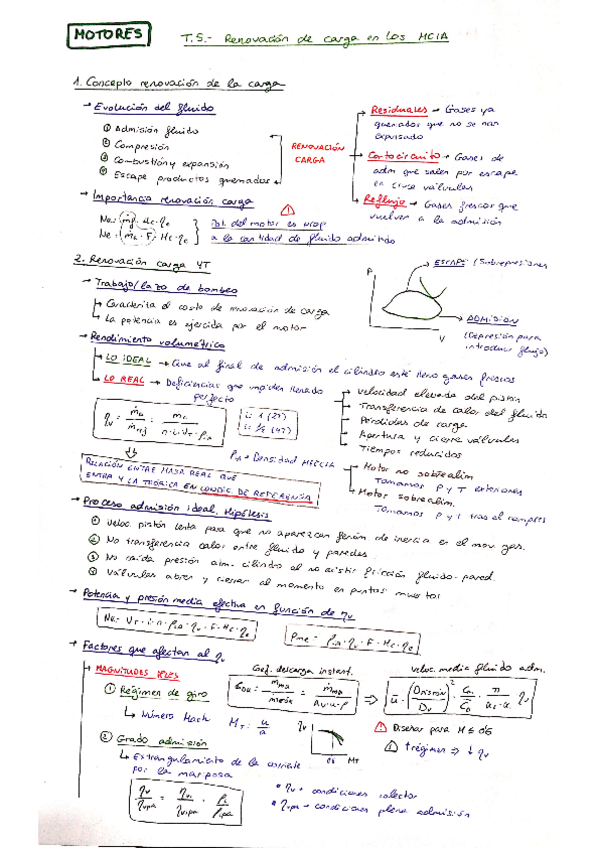 MOTORES
T.5.- Renovación de carga en los MCIA
1. Concepto renovación de la carga
→ Evolución del fluido
① Admisión fluido
② Compresión
③ Combustión y expansión
④ Escape productos quemados
RENOVACIÓN
CARGA
Residuales → Gases ya
quemados que no se han
expulsado
Cortocircuito → Gases de
adm que salen por escape
en cruce válvulas
Reflujo → Gases frescos que
vuelven a la admisión
→ Importancia renovación carga
Ne = ṁf · Hc · ηe
Ne = ṁa · F · Hc · ηe
Pot. del motor es prop
a la cantidad de fluido admitido
2. Renovación carga 4T
→ Trabajo/lazo de bombeo
↳ Caracteriza el costo de renovación de carga
↳ La potencia es ejercida por el motor
P
V
ESCAPE (Sobrepresiones
ADMISIÓN
(Depresión para
introducir flujo)
→ Rendimiento volumétrico
LO IDEAL → Que al final de admisión el cilindro esté lleno gases frescos
LO REAL → Deficiencias que impiden llenado
perfecto
Velocidad elevada del pistón
Transferencia de calor del fluido
Pérdidas de carga
Apertura y cierre válvulas
Tiempos reducidos
i = 1 (2T)
i = 1/2 (4T)
RELACIÓN ENTRE MASA REAL QUE
ENTRA Y LA TEÓRICA EN CONDIC DE REFERENCIA
= Densidad MEZCLA
Motor no sobrealim
Tomamos P y T exteriores
Motor sobrealim.
Tomamos P y T tras el compres
→ Proceso admisión ideal. Hipótesis
① Veloc. pistón lenta para que no aparezcan fenóm de inercia en el mov. gas.
② No transferencia calor entre fluido y paredes.
③ No caída presión atm. cilindro al no existir fricción fluido-pared.
④ Válvulas abren y cierran al momento en puntos muertos
→ Potencia y presión media efectiva en función de ηv
→ Factores que afectan al ηv
MAGNITUDES
① Régimen de giro
↳ Número Mach
Coef. descarga instant.
Veloc. media fluido adm.
ηv
⚠ Diseñar para
⚠ ↑ régimen ⇒ ↓ ηv
② Grado admisión
↳ Extrangulamiento de la corriente
por la mariposa
• ηv → condiciones colector
• ηvpa → condiciones plena admisión